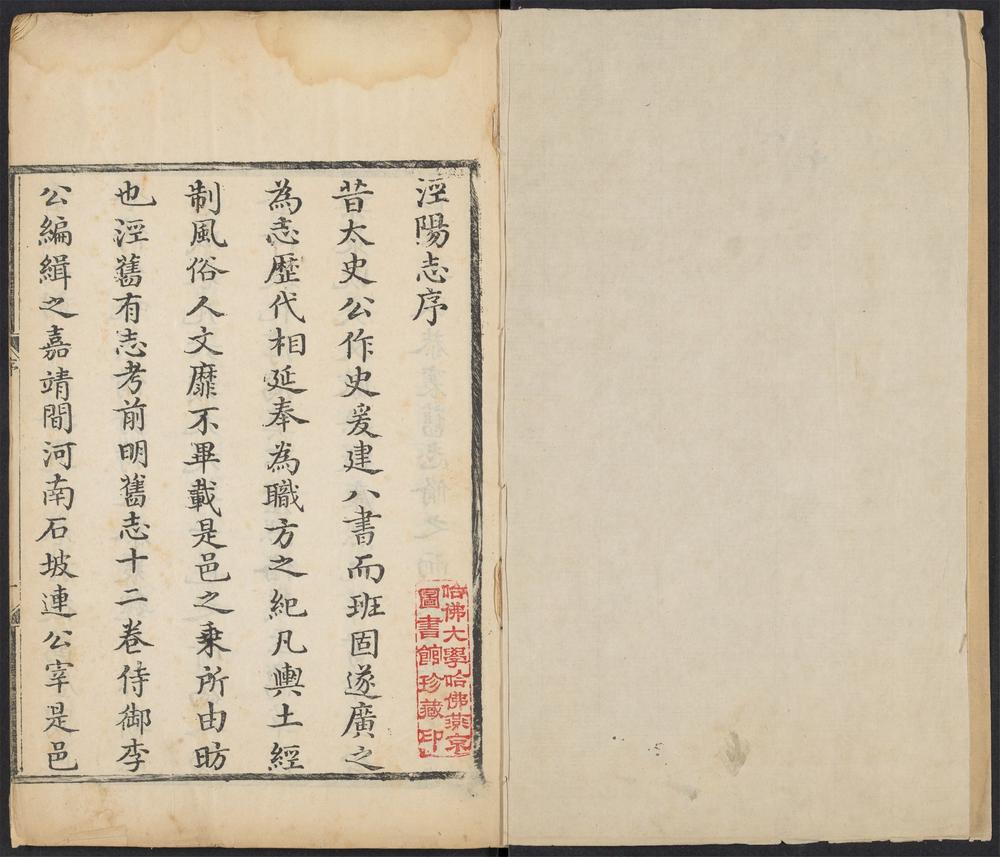 涇陽志序
昔太史公作史爰建八書而班固遂廣之
為志歷代相延奉為職方之紀凡輿土經
制風俗人文靡不畢載是邑之乘所由昉
也涇舊有志考前明舊志十二卷侍御李
公編緝之嘉靖間河南石坡連公宰是邑
哈佛大學哈佛燕京
圖書館珍藏印
序
一